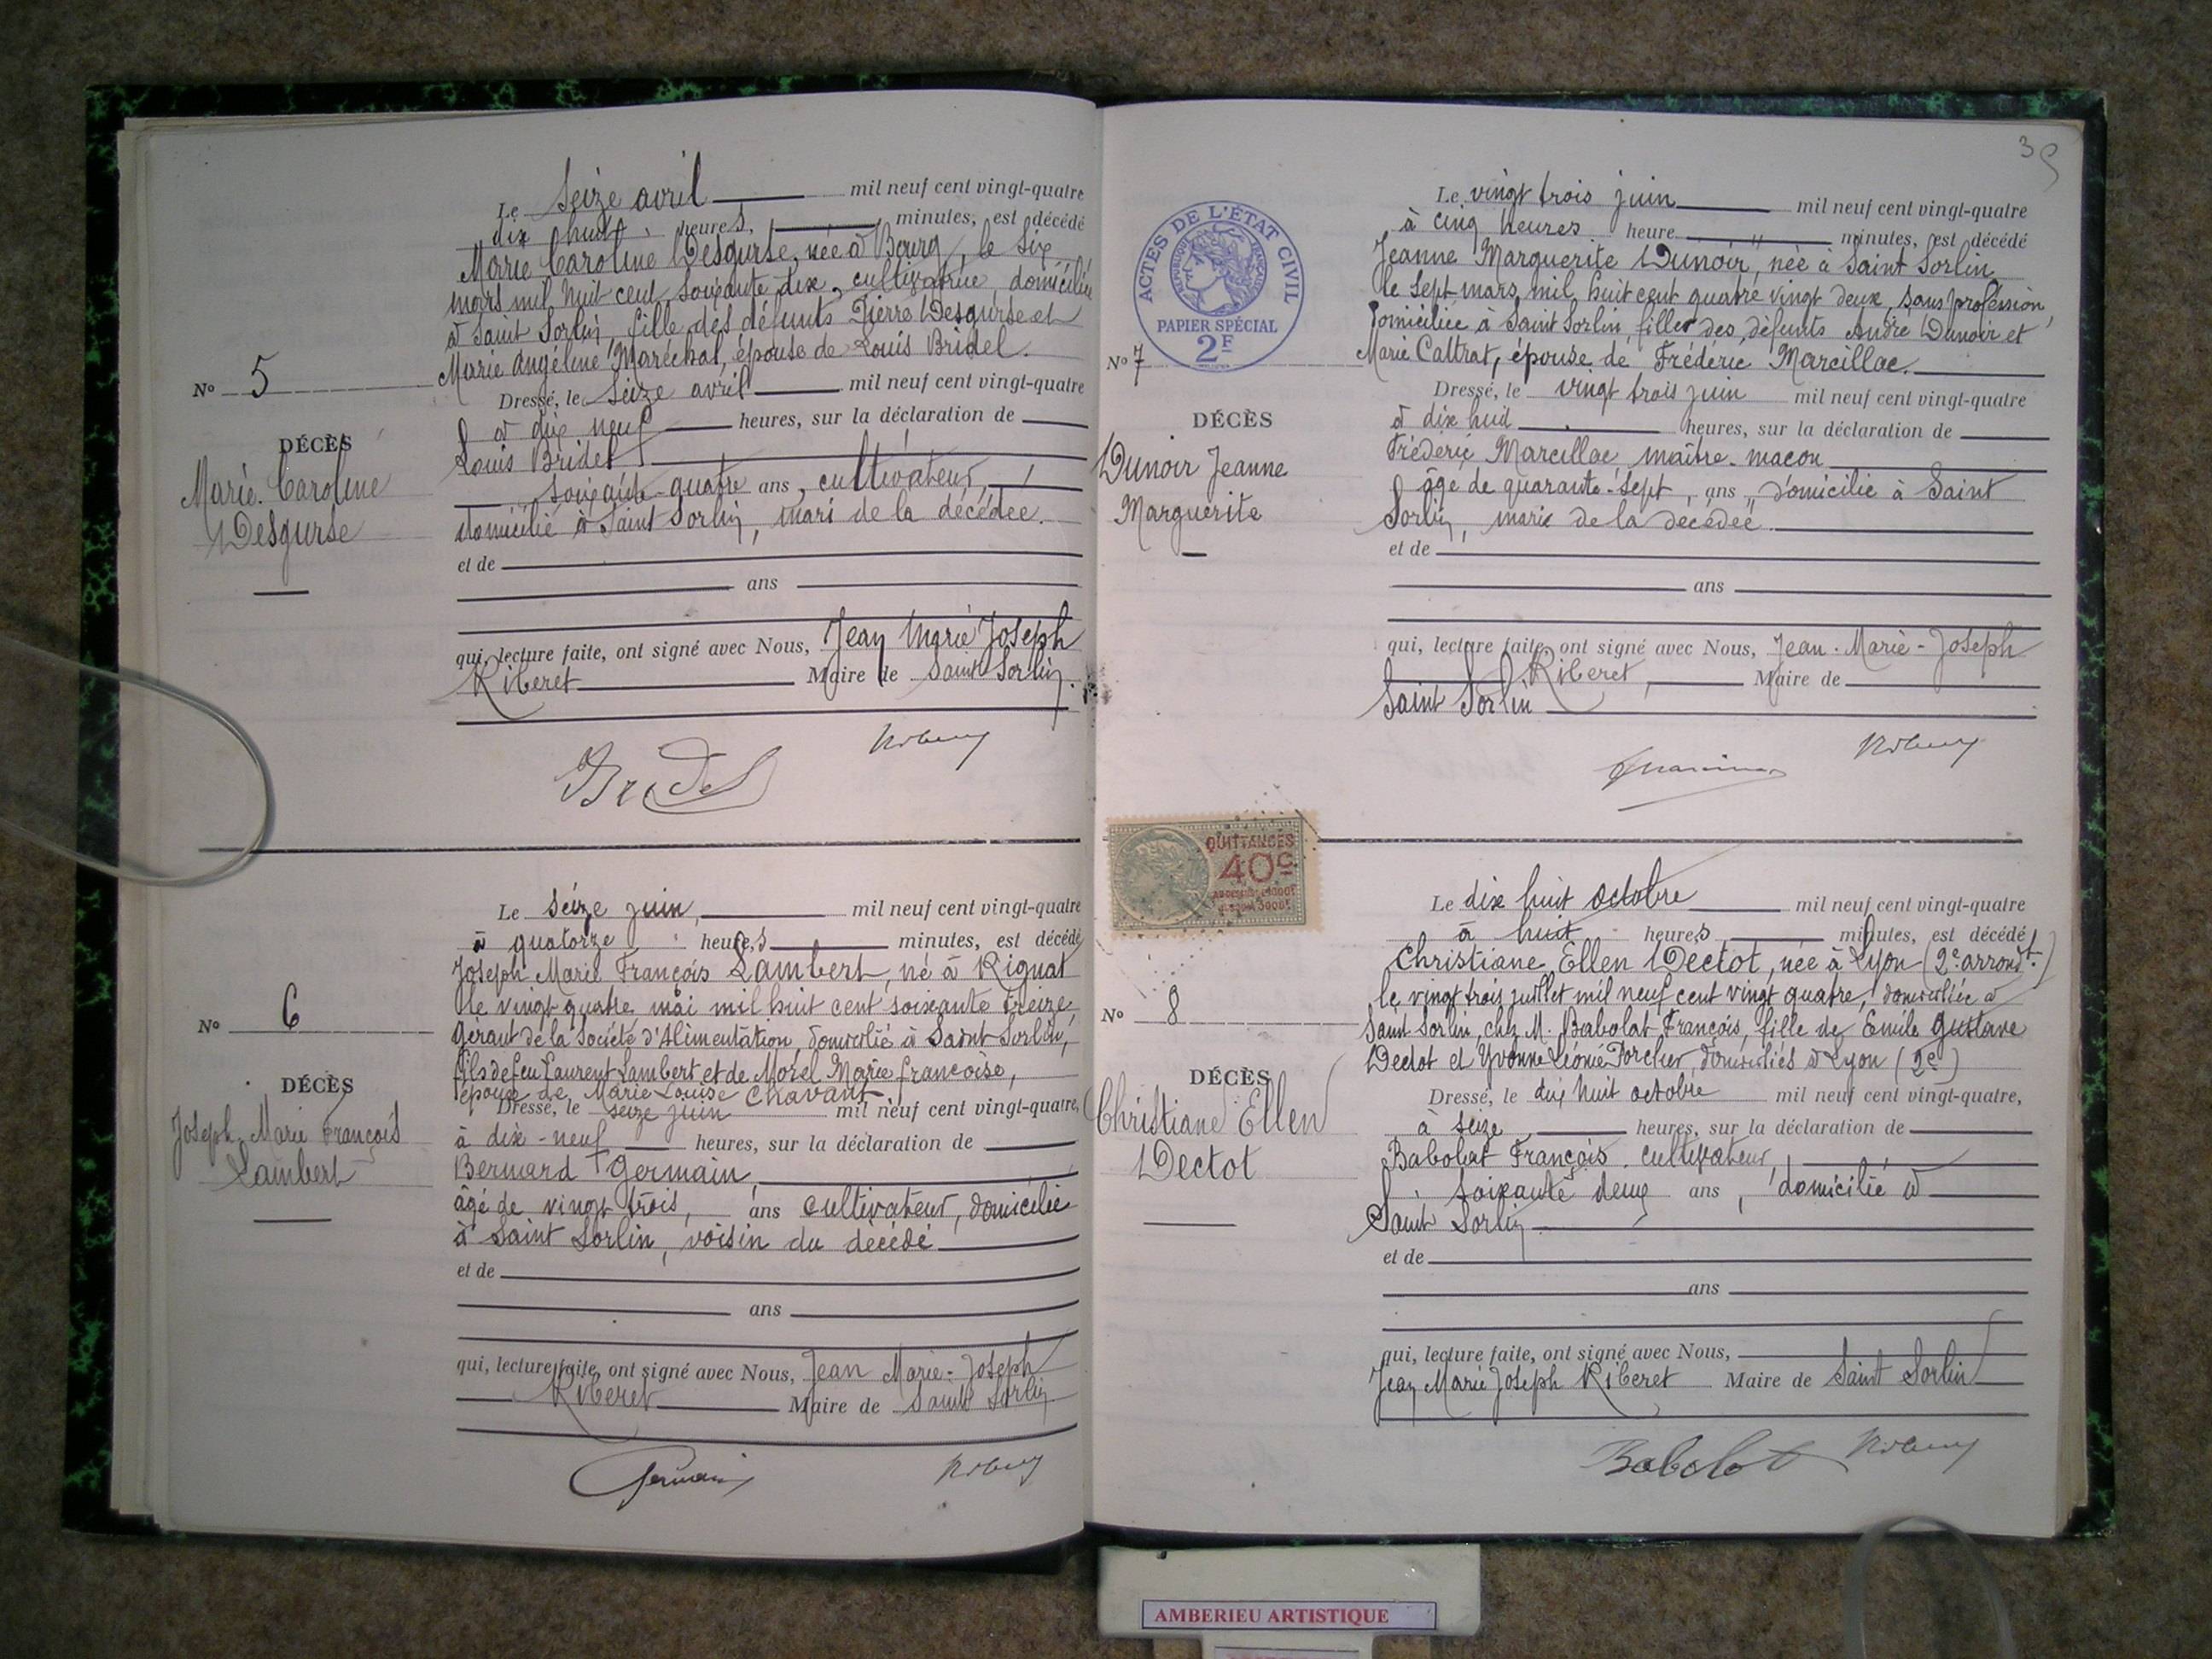 Le Seize avril mil neuf cent vingt-quatre
dix huit heures, minutes, est décédé
Marie Caroline Desgurse, née à Bourg, le six
mars mil huit cent soixante dix, cultivatrice, domiciliée
à Saint Sorlin, fille des défunts Pierre Desgurse et
Marie Angéline Maréchal, épouse de Louis Bridel.
No 5
Dressé, le Seize avril mil neuf cent vingt-quatre
à dix neuf heures, sur la déclaration de
DÉCÈS
Marie Caroline
Desgurse
Louis Bridel
soixante-quatre ans, cultivateur,
domicilié à Saint Sorlin, mari de la décédée.
et de
ans
qui, lecture faite, ont signé avec Nous, Jean Marie Joseph
Riberet Maire de Saint Sorlin.
Bridel
Le seize juin, mil neuf cent vingt-quatre
à quatorze heures minutes, est décédé
Joseph Marie François Lambert, né à Rignat
le vingt quatre mai mil huit cent soixante treize,
Gérant de la Société d'Alimentation, domicilié à Saint Sorlin,
fils de feu Laurent Lambert et de Morel Marie françoise,
époux de Marie Louise Chavant.
No 6
DÉCÈS
Joseph Marie François
Lambert
Dressé, le seize juin mil neuf cent vingt-quatre,
à dix-neuf heures, sur la déclaration de
Bernard Germain,
âgé de vingt trois, ans cultivateur, domicilié
à Saint Sorlin, voisin du décédé
et de
ans
qui, lecture faite, ont signé avec Nous, Jean Marie-Joseph
Riberet Maire de Saint Sorlin
Germain
39
ACTES DE L'ÉTAT CIVIL
RÉPUBLIQUE FRANÇAISE
PAPIER SPÉCIAL
2F
Le vingt trois juin mil neuf cent vingt-quatre
à cinq heures heure " minutes, est décédé
Jeanne Marguerite Dunoir, née à Saint Sorlin
le sept mars mil huit cent quatre vingt deux, sans profession,
domiciliée à Saint Sorlin, fille des défunts André Dunoir et
Marie Cattrat, épouse de Frédéric Marcillac.
No 7
DÉCÈS
Dunoir Jeanne
Marguerite
Dressé, le vingt trois juin mil neuf cent vingt-quatre
à dix huit heures, sur la déclaration de
Frédéric Marcillac, maître-maçon
âgé de quarante-sept, ans, domicilié à Saint
Sorlin, mari de la décédée
et de
ans
qui, lecture faite, ont signé avec Nous, Jean-Marie-Joseph
Riberet, Maire de
Saint Sorlin
QUITTANCES
40c
Le dix huit octobre mil neuf cent vingt-quatre
à huit heures minutes, est décédé
Christiane Ellen Dectot, née à Lyon (2e arrondt.)
le vingt trois juillet mil neuf cent vingt quatre, domiciliée à
Saint Sorlin, chez M. Babolat François, fille de Emile Gustave
Dectot et Yvonne Léonie Porcher, domiciliés à Lyon (2e)
No 8
DÉCÈS
Christiane Ellen
Dectot
Dressé, le dix huit octobre mil neuf cent vingt-quatre,
à seize heures, sur la déclaration de
Babolat François, cultivateur,
soixante deux ans, domicilié à
Saint Sorlin
et de
ans
qui, lecture faite, ont signé avec Nous,
Jean Marie Joseph Riberet Maire de Saint Sorlin
Babolat
AMBERIEU ARTISTIQUE